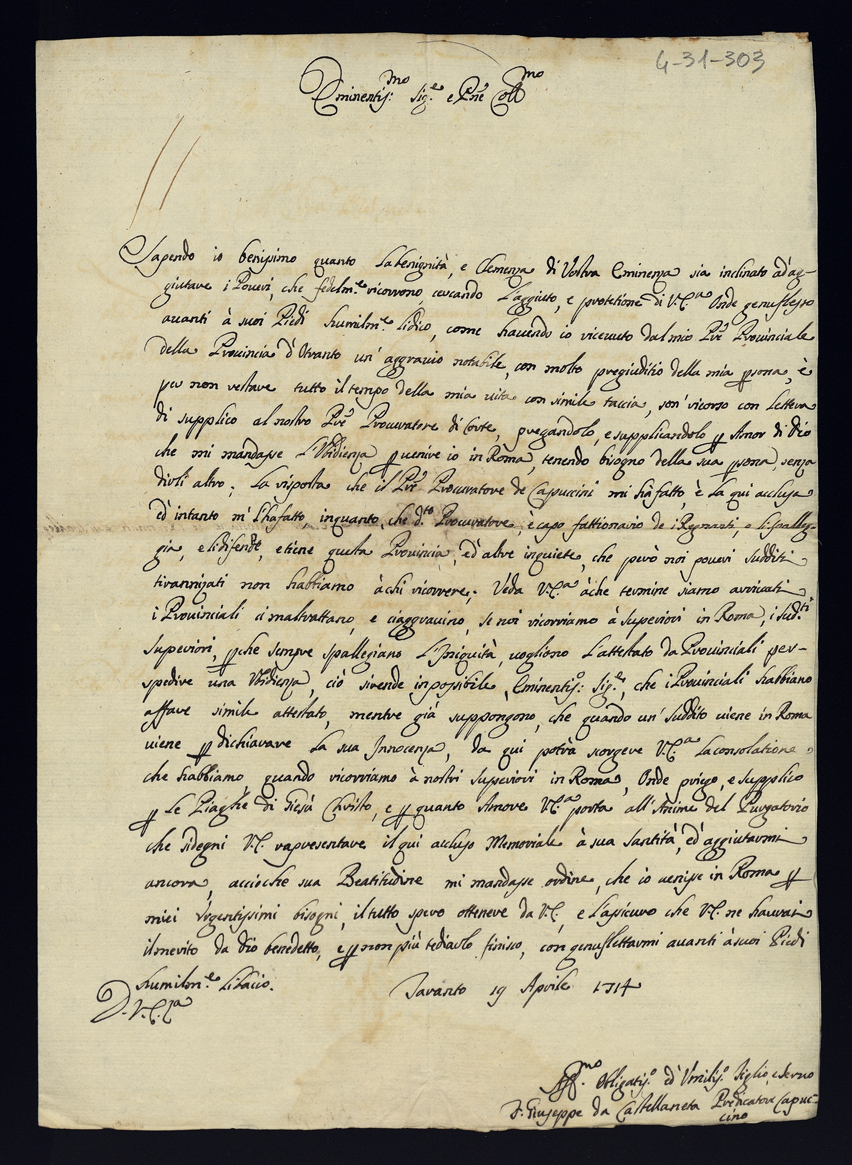 4-31-303
Eminentis:mo Sig.e e Pne Coll.mo
Sapendo io benissimo quanto la benignità, e Clemenza di Vostra Eminenza sia inclinato ad ag-
giutare i Poveri, che fedelm.e ricorrono, cercando l'aggiuto, e protetione di V.E.a Onde genuflesso
avanti à suoi Piedi humilm.e li dico, come havendo io ricevuto dal mio Pre Provinciale
della Provincia d'Otranto un' aggravio notabile, con molto pregiuditio della mia psona, è
per non restare tutto il tempo della mia vita con simile taccia, son' ricorso con lettera
di supplico al nostro Pre Procuratore di Corte, pregandolo, e supplicandolo p Amor di Dio
che mi mandasse l'Ubidienza p venire io in Roma, tenendo bisogno della sua psona, senza
dirli altro; La risposta che il Pre Procuratore de Capuccini mi hà fatto, è la qui acclusa
ed' intanto m' l'hà fatto, inquanto che d:to Procuratore, è capo fattionario de i Regnanti, e li spalleg-
gia, e li difende, e tiene questa Provincia, ed' altre inquiete, che però noi poveri sudditi
tirannizati non habbiamo à chi ricorrere; Veda V.E.a à che termine siamo arrivati
i Provinciali ci maltrattano, e ci aggravano, se noi ricorriamo à superiori in Roma, i sud:ti
superiori, pche sempre spallegiano l'Iniquità, vogliono l'attestato da Provinciali per
spedire una Ubidienza, ciò si rende inposibile, Eminentis:o Sig.re, che i Provinciali habbiano
affare simile attestato, mentre già suppongono, che quando un' suddito viene in Roma
viene p dichiarare la sua Innocenza, da qui potrà scorgere V.E.a la consolatione
che habbiamo quando ricorriamo à nostri superiori in Roma, Onde priego, e supplico
p le Piaghe di Giesù Christo, e p quanto Amore V.E.a porta all' Anime del Purgatorio
che si degni V.E. rapresentare il qui accluso Memoriale à sua Santità, ed' aggiutarmi
ancora, acciochè sua Beatitudine mi mandasse ordine, che io venisse in Roma p
miei Urgentissimi bisogni, il tutto spero ottenere da V.E., e l'assicuro che V.E. ne haverà
il merito da Dio benedetto, e p non più tediarlo finisco, con genuflettarmi avanti à suoi Piedi
humilm.e li bacio.
Taranto 19 Aprile 1714
D. V.E.za
Aff.mo Obligatis.o ed' Umilis.o Figlio, e servo
F. Giuseppe da Castellaneta Predicatore Capuc-
cino